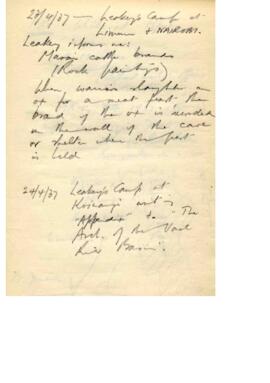 23/4/37 — Leakey's Camp at
Limuru & NAIROBI.
Leakey informs us:
Masai cattle brands
(Rock paintings)
When warriors slaughter an
ox for a meat feast the
brand of the ox is recorded
on the wall of the cave
or shelter where the feast
is held
24/4/37 Leakey's Camp at
writing
"Appendix" to "The
Arch. of the Vaal
River Basin".